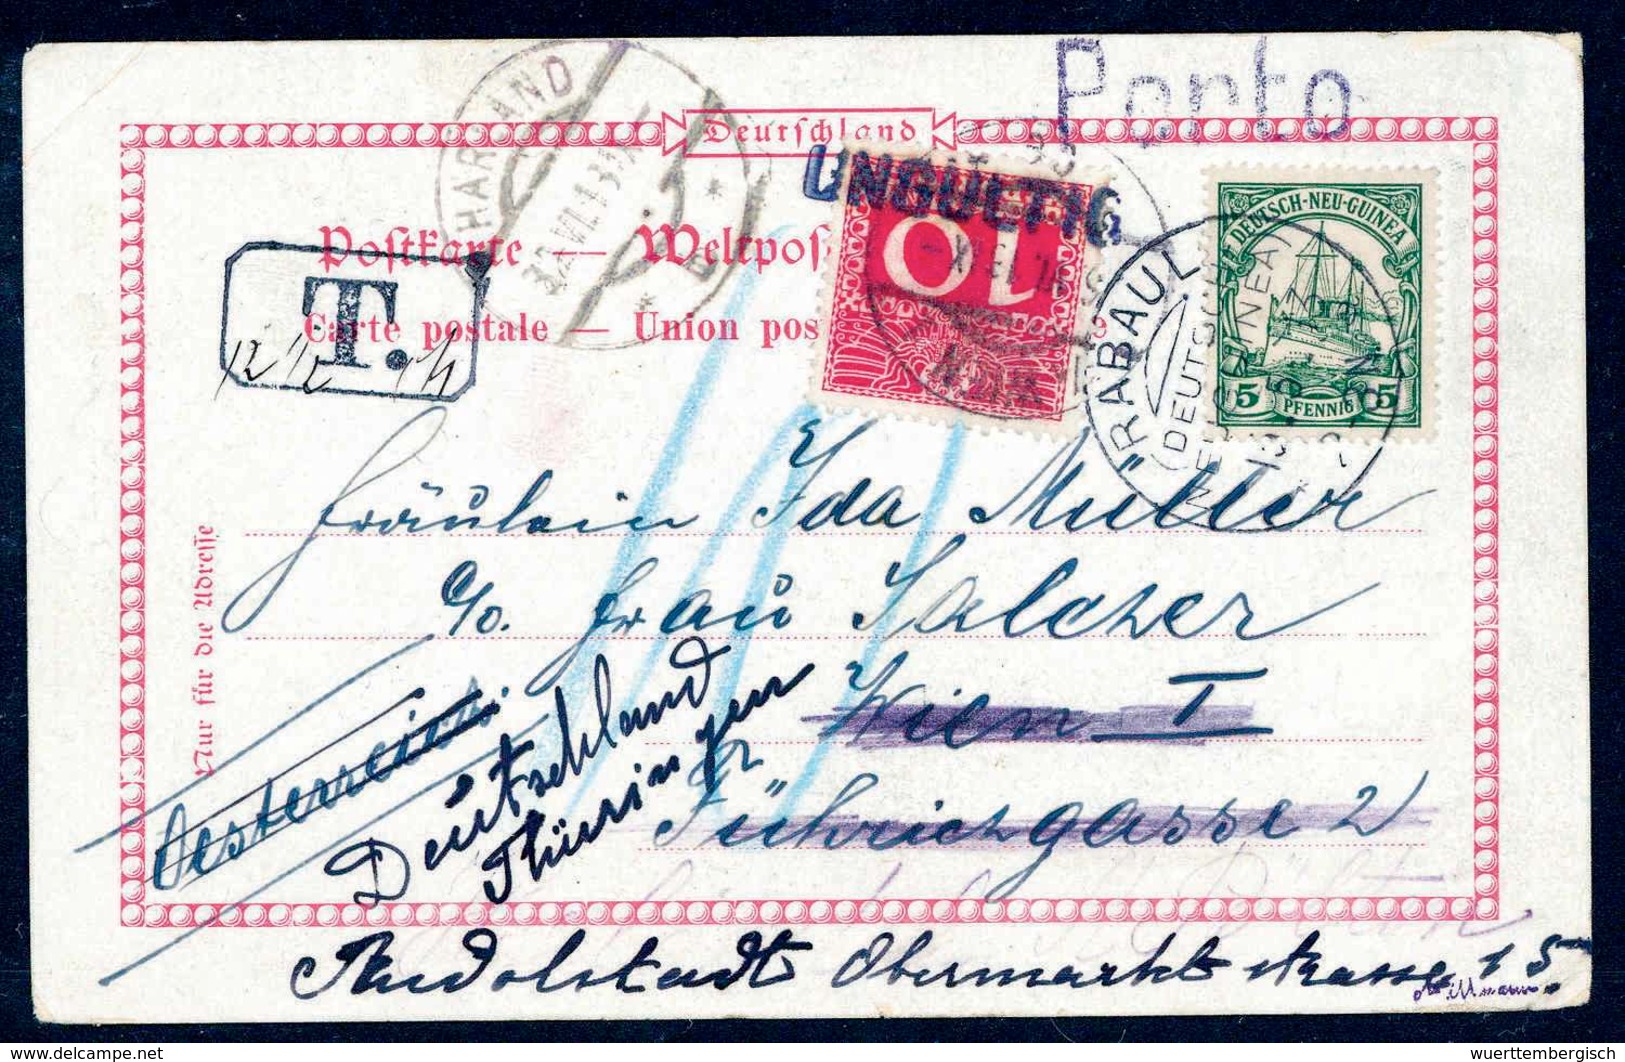 Porto
Deutschland
UNGÜLTIG
Postkarte — Weltpos
Carte postale — Union pos
T.
12 1/2
10
WIEN
DEUTSCH-NEU-GUINEA
5 PFENNIG 5
RABAUL
(DEUTSCH
NEUGUINEA)
Nur für die Adresse
Fräulein Ida Müller
c/o. Frau Salcher
Wien I
Führichgasse 2
Oesterreich
Deutschland
Thüringen
Rudolstadt Obermarktstrasse 15.
wuerttembergisch